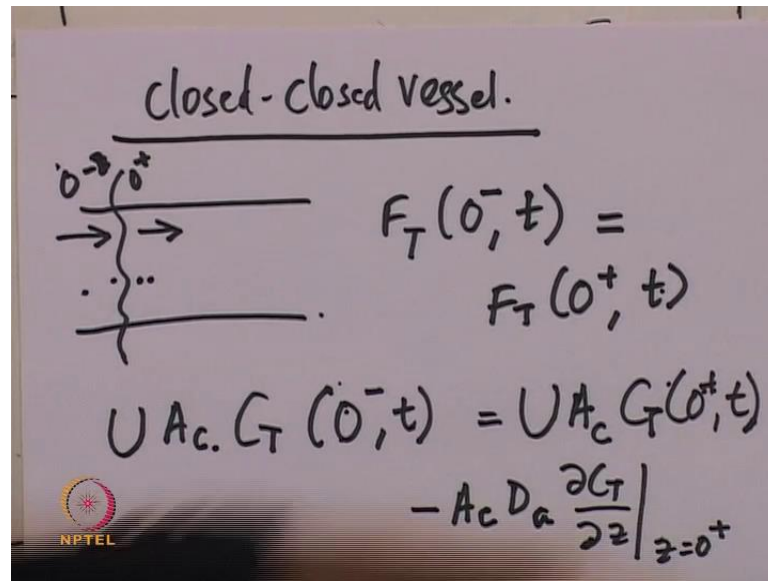 Closed-Closed Vessel.
0⁻ 0⁺
F_T (0⁻, t) =
F_T (0⁺, t)
U A_c. C_T (0⁻, t) = U A_c C_T (0⁺, t)
- A_c D_a ∂C_T/∂z |_z=0⁺
NPTEL